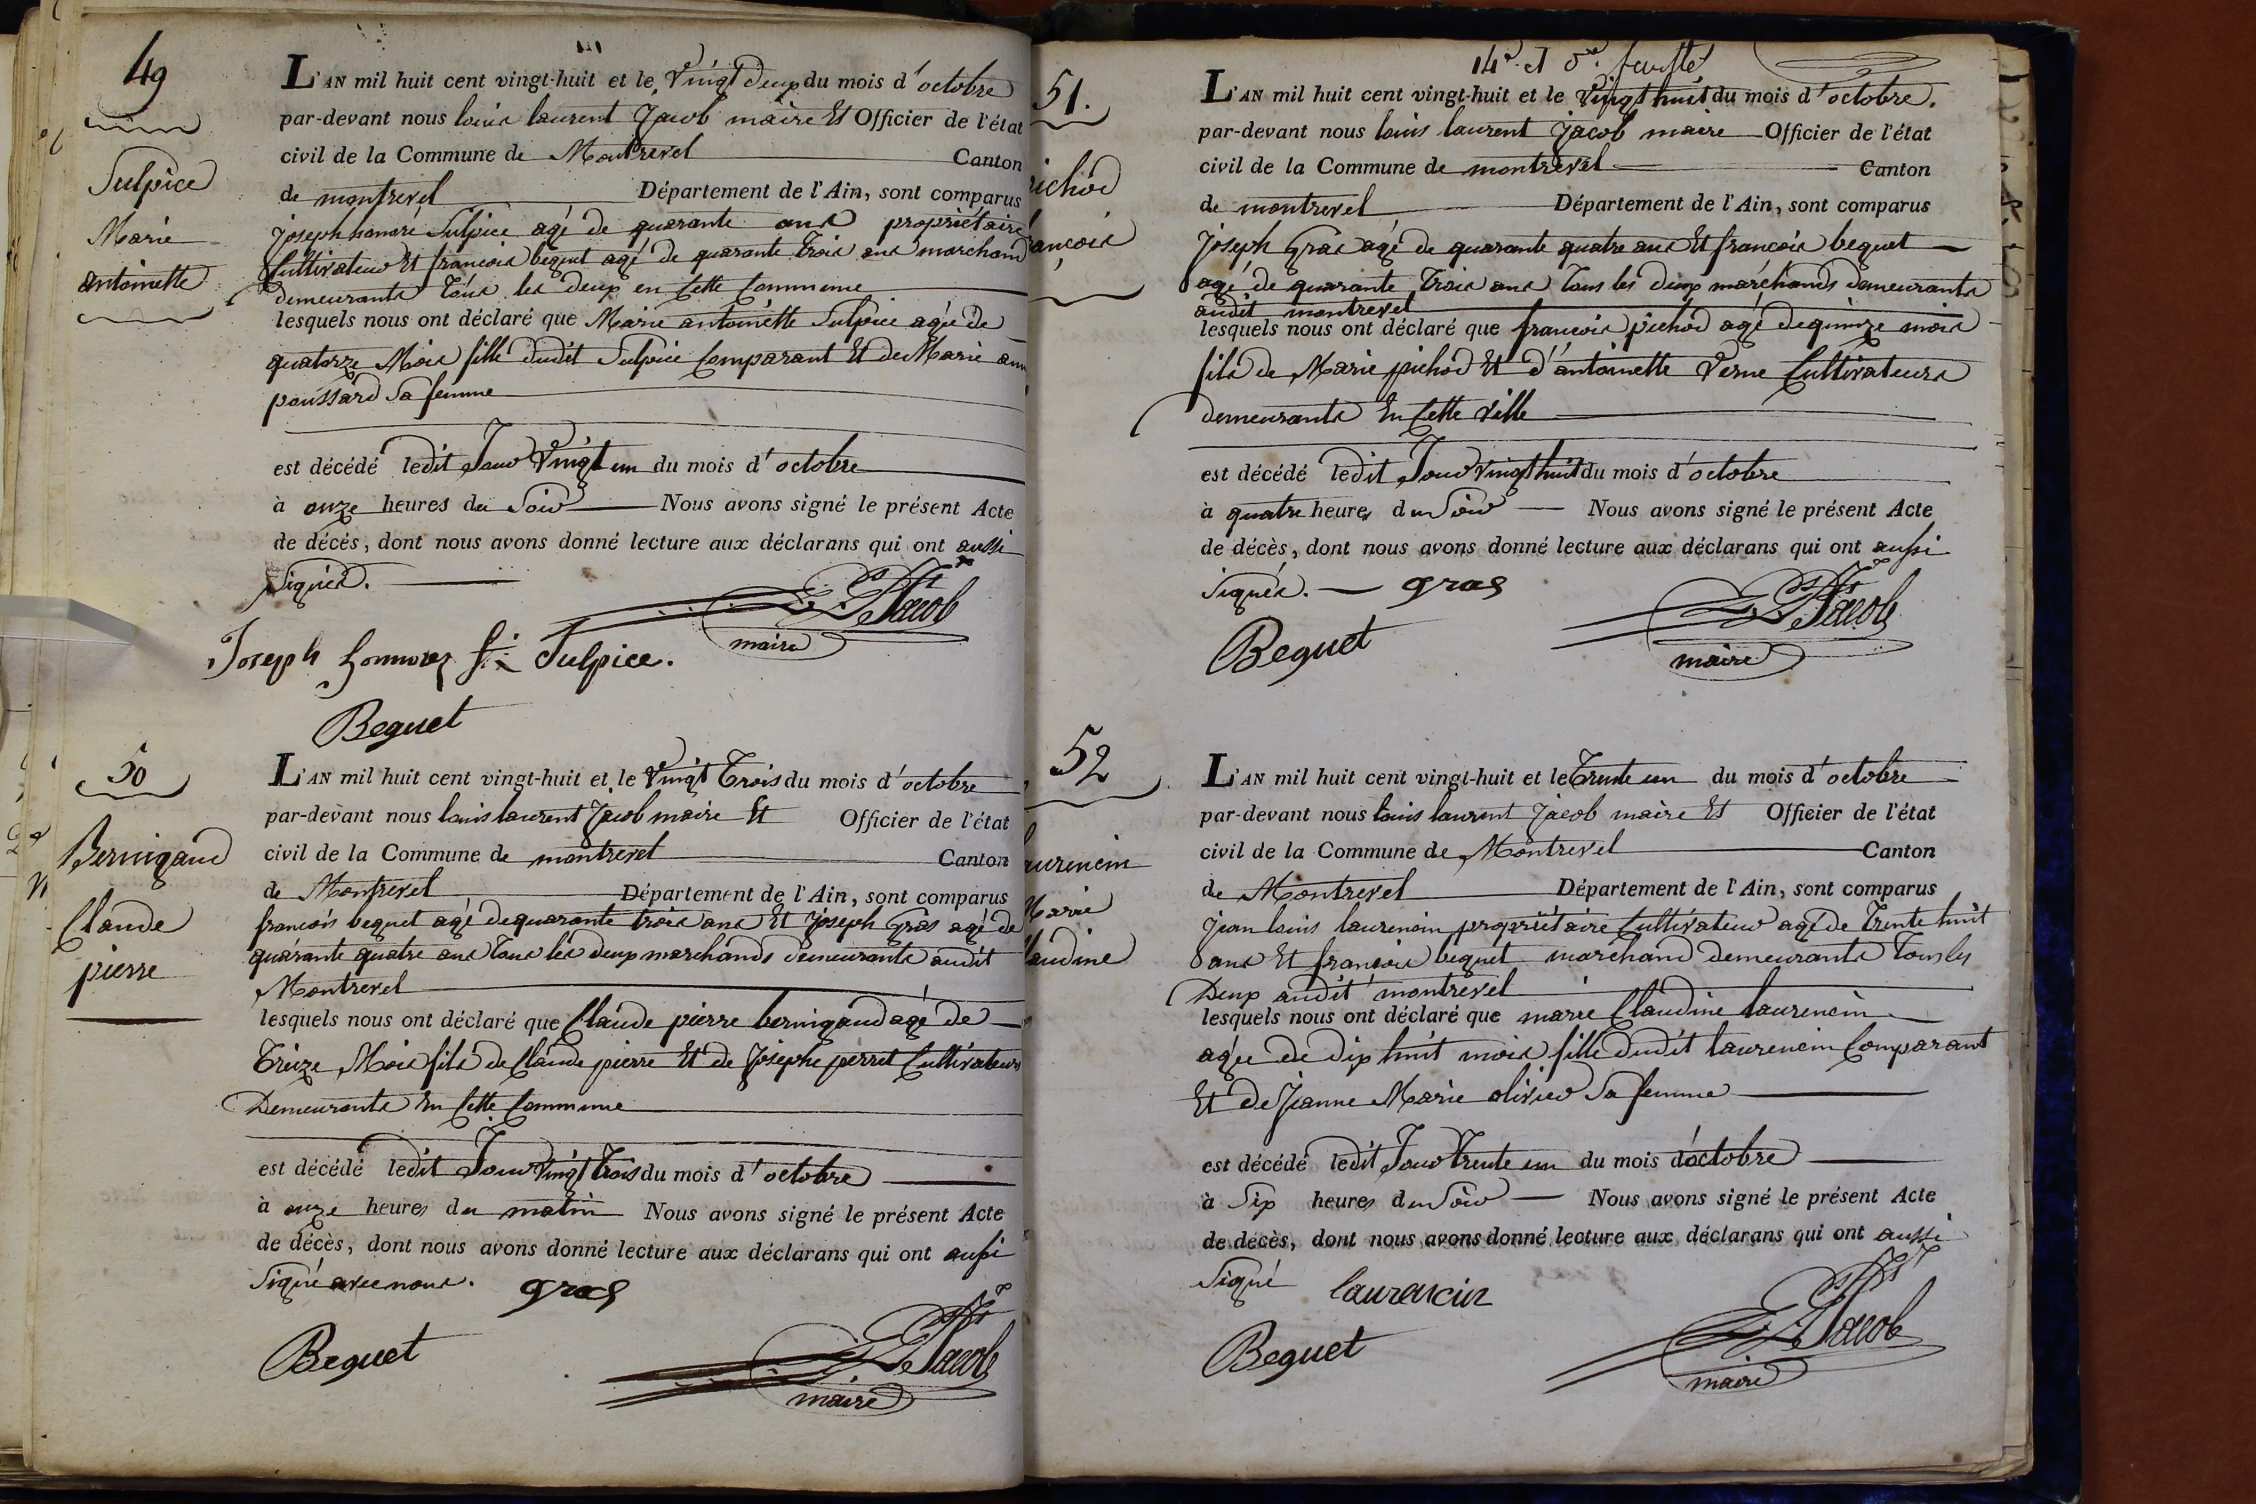 49
Sulpice
Marie
antoinette
L'AN mil huit cent vingt-huit et le Vingt deux du mois d'octobre
par-devant nous louis laurent Jacob maire Et Officier de l'état
civil de la Commune de Montrevel Canton
de montrevel Département de l'Ain, sont comparus
joseph honoré Sulpice agé de quarante ans propriétaire
Cultivateur Et francois bequet agé de quarante trois ans marchand
demeurants tous les deux en Cette Commune
lesquels nous ont déclaré que Marie antoinette Sulpice agée de
quatorze Mois fille dudit Sulpice Comparant Et de Marie ann
poussard Sa femme
est décédé ledit Jour Vingt un du mois d'octobre
à onze heures du Soir Nous avons signé le présent Acte
de décès, dont nous avons donné lecture aux déclarans qui ont aussi
Signés.
Jacob
maire
Joseph Sulpice.
Bequet
50
Bernigaud
Claude
pierre
L'AN mil huit cent vingt-huit et le Vingt Trois du mois d'octobre
par-devant nous louis laurent Jacob maire Et Officier de l'état
civil de la Commune de montrevel Canton
de Montrevel Département de l'Ain, sont comparus
francois bequet agé de quarante trois ans Et Joseph Gras agé de
quarante quatre ans tous les deux marchands demeurants audit
Montrevel
lesquels nous ont déclaré que Claude pierre bernigaud agé de
Treize Mois fils de Claude pierre Et de Josephe perret Cultivateurs
Demeurants En Cette Commune
est décédé ledit Jour Vingt Trois du mois d'octobre
à onze heures du matin Nous avons signé le présent Acte
de décès, dont nous avons donné lecture aux déclarans qui ont aussi
Signé avec nous. gras
Bequet
Jacob
maire
14e et 8e. feuille
51.
ichod
ancois
L'AN mil huit cent vingt-huit et le Vingt huit du mois d'octobre.
par-devant nous louis laurent Jacob maire Officier de l'état
civil de la Commune de montrevel Canton
de montrevel Département de l'Ain, sont comparus
Joseph Gras agé de quarante quatre ans Et francois bequet
agé de quarante Trois ans tous les deux marchands demeurants
audit montrevel
lesquels nous ont déclaré que francois pichod agé de quinze mois
fils de Marie pichod Et d'antoinette Verne Cultivateurs
demeurants En Cette Ville
est décédé ledit Jour vingt huit du mois d'octobre
à quatre heures du Soir Nous avons signé le présent Acte
de décès, dont nous avons donné lecture aux déclarans qui ont aussi
Signés. gras
Jacob
Bequet
maire
52
aurencin
Marie
laudine
L'AN mil huit cent vingt-huit et le Trente un du mois d'octobre
par-devant nous louis laurent Jacob maire Et Officier de l'état
civil de la Commune de Montrevel Canton
de Montrevel Département de l'Ain, sont comparus
Jean louis laurencin propriétaire Cultivateur agé de Trente huit
ans Et francois bequet marchand demeurants Tous les
Deux audit montrevel
lesquels nous ont déclaré que marie Claudine laurencin
agée de dix huit mois fille dudit laurencin Comparant
Et de Jeanne Marie olivier Sa femme
est décédé ledit Jour Trente un du mois d'octobre
à Six heures du Soir Nous avons signé le présent Acte
de décès, dont nous avons donné lecture aux déclarans qui ont aussi
Signé laurencin
Bequet
Jacob
maire